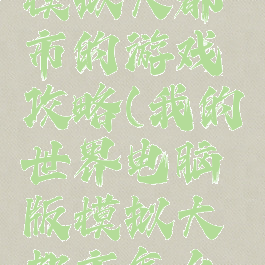 模拟大都
市的游戏
攻略(我的
世界电脑
版模拟大